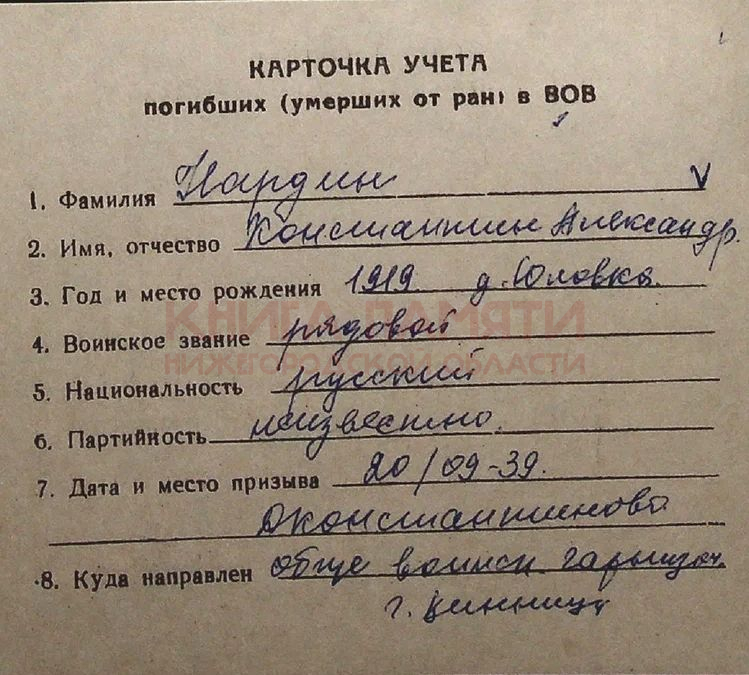 КАРТОЧКА УЧЕТА
погибших (умерших от ран) в ВОВ
1. Фамилия Нардин V
2. Имя, отчество Константин Александр.
3. Год и место рождения 1919 д. Юловка.
КНИГА ПАМЯТИ
4. Воинское звание рядовой
НИЖЕГОРОДСКОЙ ОБЛАСТИ
5. Национальность русский
6. Партийность неизвестно.
7. Дата и место призыва 20/09-39.
Дконстантиново
8. Куда направлен обще воинск. гарнизон.
г. Винницу